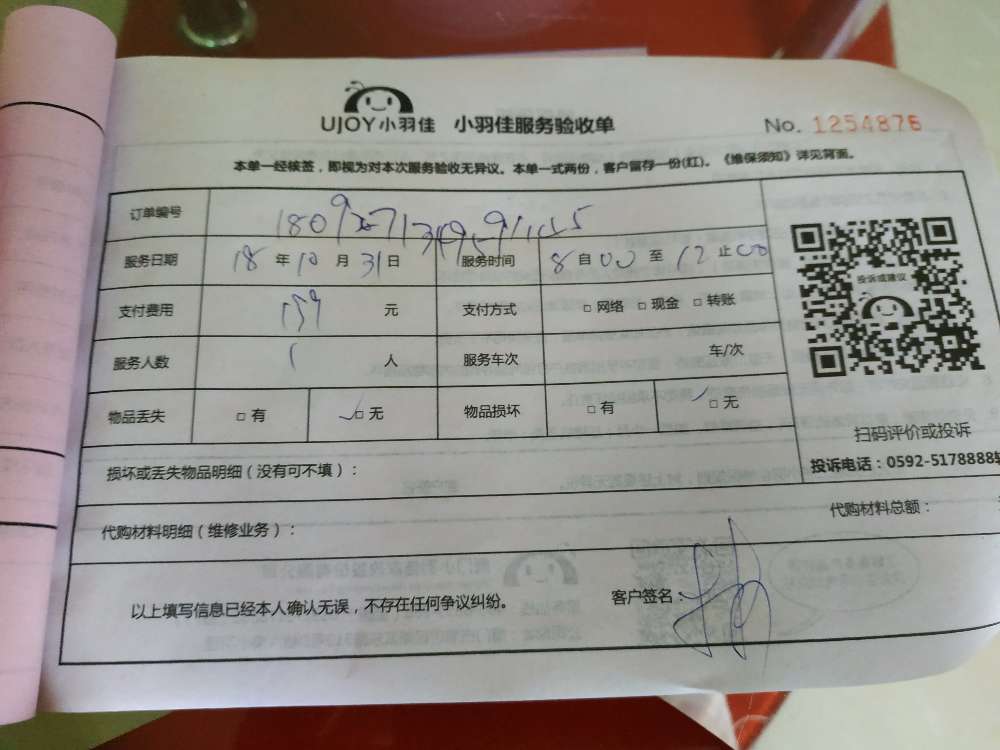 UJOY小羽佳 小羽佳服务验收单 No. 1254876
本单一经核签，即视为对本次服务验收无异议。本单一式两份，客户留存一份(红)。《维保须知》详见背面。
订单编号
服务日期 18 年 10 月 31 日 服务时间 8 自 00 至 12 止 00
支付费用 159 元 支付方式 □ 网络 □ 现金 □ 转账
服务人数 1 人 服务车次 车/次
物品丢失 □ 有 ✓□ 无 物品损坏 □ 有 ✓□ 无
投诉或建议
扫码评价或投诉
投诉电话：0592-5178888转
损坏或丢失物品明细（没有可不填）：
代购材料明细（维修业务）： 代购材料总额：
以上填写信息已经本人确认无误，不存在任何争议纠纷。 客户签名：